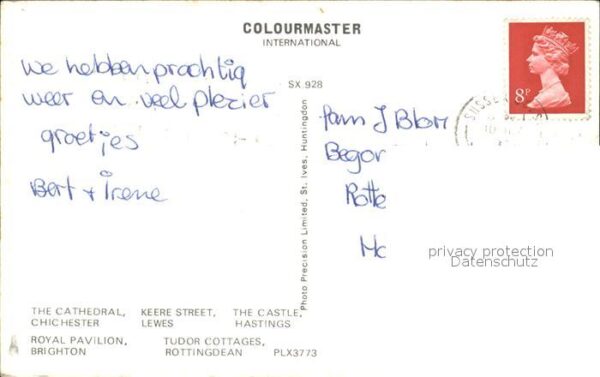 COLOURMASTER
INTERNATIONAL
SX.928
8P
SUSSE
we hebben prachtig
weer en veel plezier
groetjes
Bert + Irene
Photo Precision Limited, St. Ives, Huntingdon
fam J Blom
Begon
Rotte
Ho
privacy protection
Datenschutz
THE CATHEDRAL,
CHICHESTER
KEERE STREET,
LEWES
THE CASTLE,
HASTINGS
ROYAL PAVILION,
BRIGHTON
TUDOR COTTAGES,
ROTTINGDEAN
PLX3773